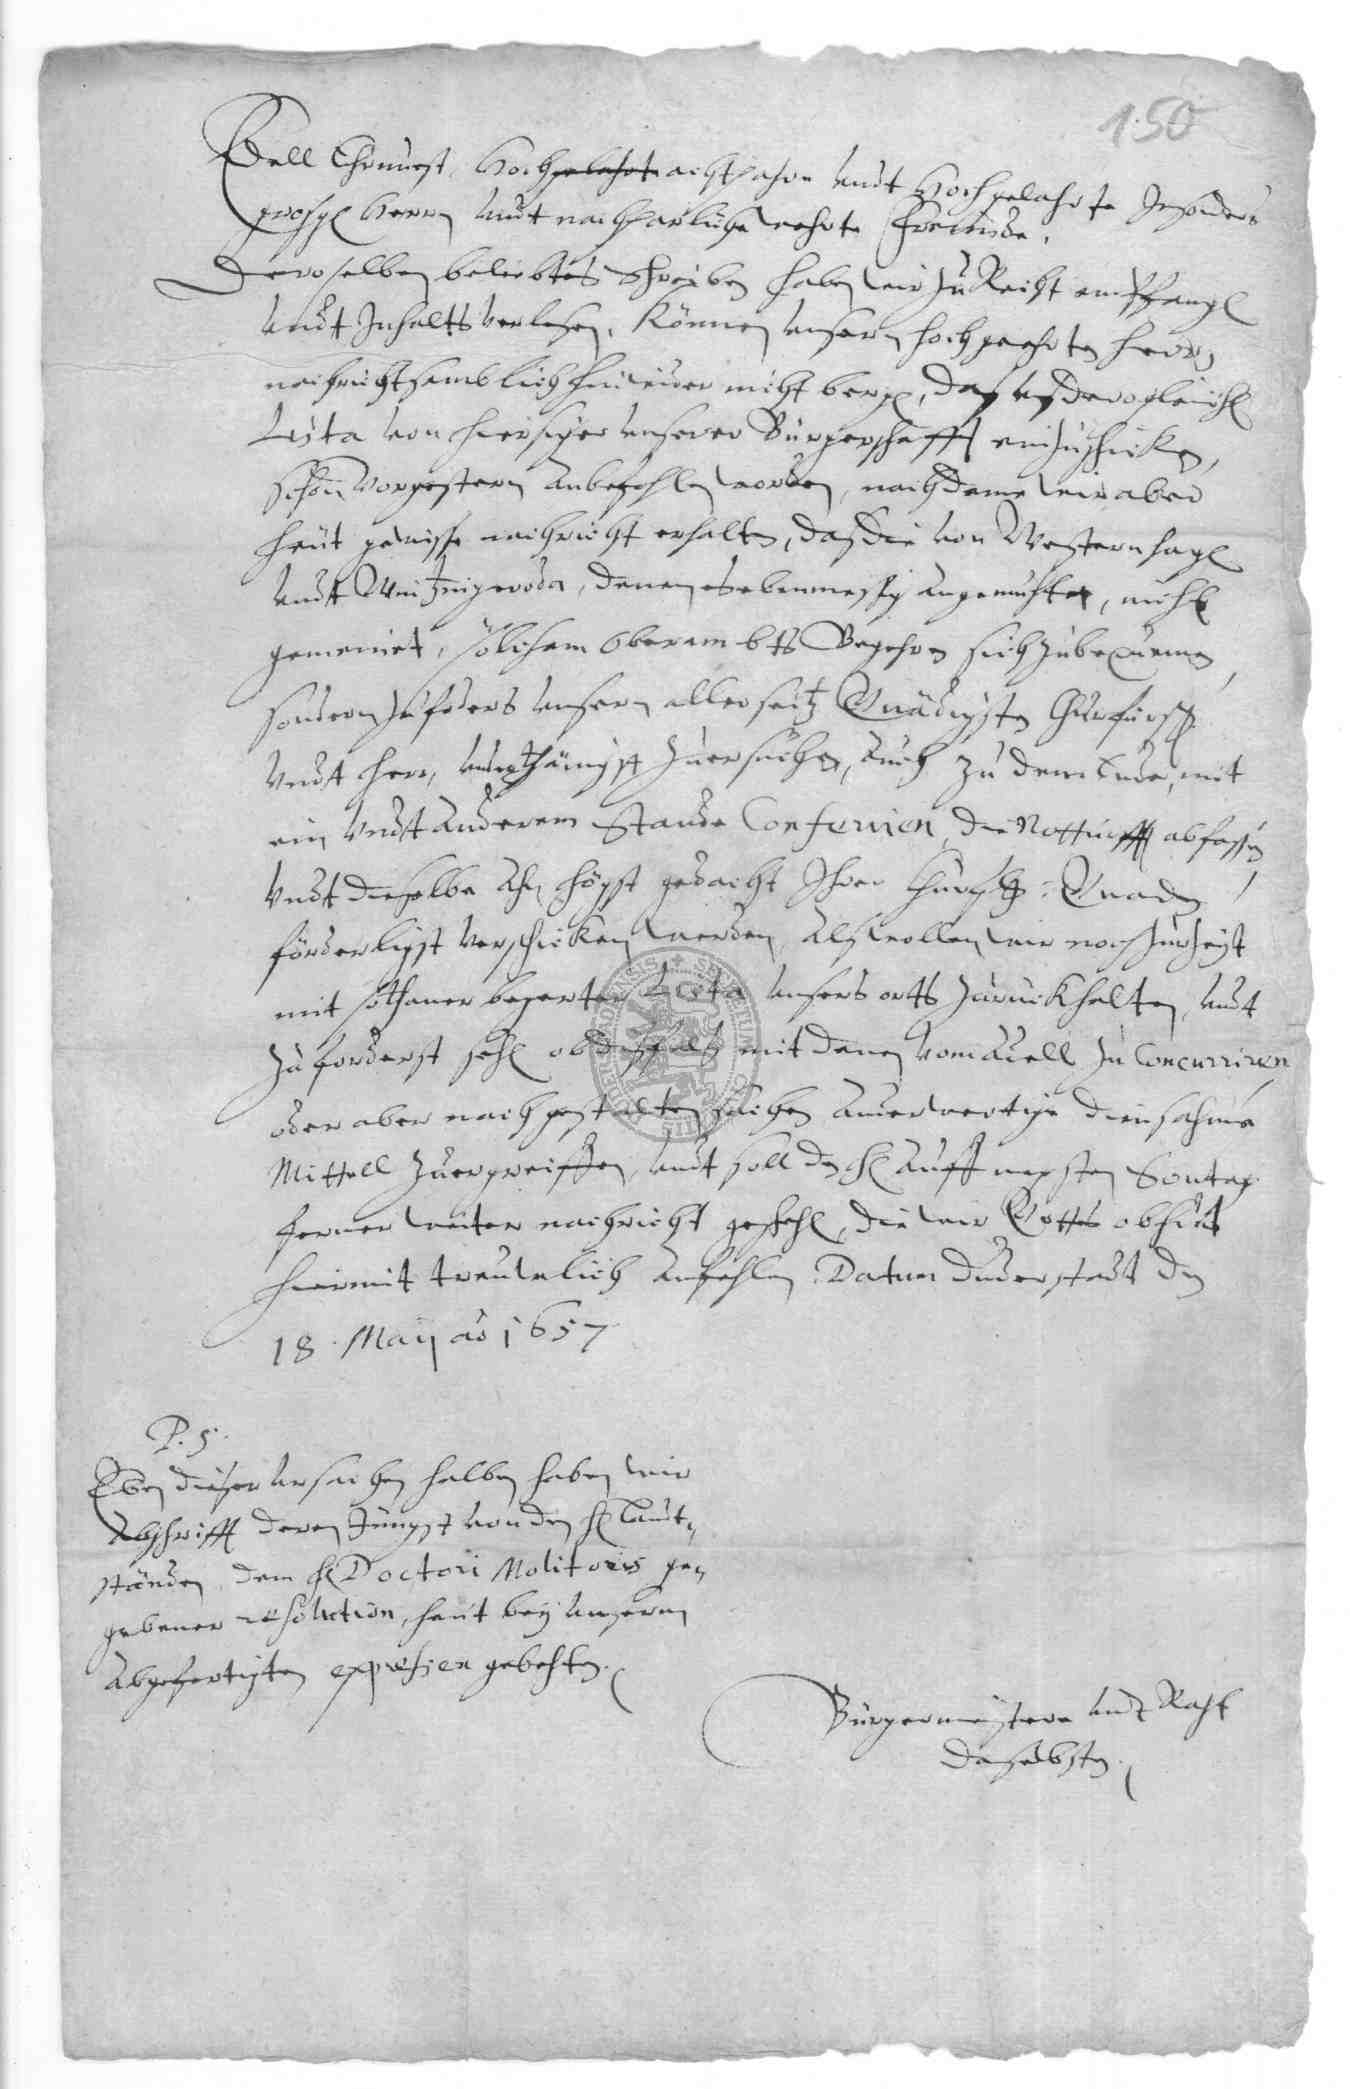 150
Edell Ehrnvest, Hochgelahrt achtbahre undt Hochgelahrte Insonders
großg. Herrn undt nachbarliche wehrte Freunde.
Deroselben beliebtes Schreiben haben wir zu Recht empfangen
undt Inhalts verlesen, Können unsern hochgeehrten Herrn
nachrichtsamblich hinwider nicht bergen, daß uß dergleichen
Lista von hiesiger unserer Bürgerschafft einzuschicken,
schon vorgestern anbefohlen worden, nachdeme wir aber
heut gewisse nachricht erhalten, daß die von Westernhagen
undt Wintzingeroda, denen es ebenmessig angemuthet, nicht
gemeinet, solchem Oberambts Begehren sich zubequemen,
sondern zuforders unsern allerseitz Gnädigsten Churfürsten
undt Herr, unterthänigst zuersuchen, auch zu dem Ende, mit
ein undt anderem Stande Conferiren, die Notturfft abfassen,
undt dieselbe ahn höchst gedacht Ihrer Churfl: Gnaden
förderligst verschicken werden, Als wollen wir noch zur Zeyt
mit sothaner begerter Lista unsers orts zuruckhalten, undt
zuforderst sehen ob dißfals mit denen vom Adell zu Concurriren
oder aber nach gestalten sachen anderwertige diensahme
Mittell zuergreiffen, undt soll den H. auff negsten Sontag
ferner weiter nachricht geschehen, die wir Gottes obhuet
hiermit treuwlich anfehlen. Datum Duderstadt den
18. Maij ao 1657
P. S.
Eben dieser ursachen halben haben wir
Abschrifft deren Jüngst von den H. Landt-
ständen, dem H. Doctori Molitoris ge-
gebener resolution, heut bey unserm
Abgefertigten expressen gebehten.
Bürgermeystere undt Raht
daselbsten.